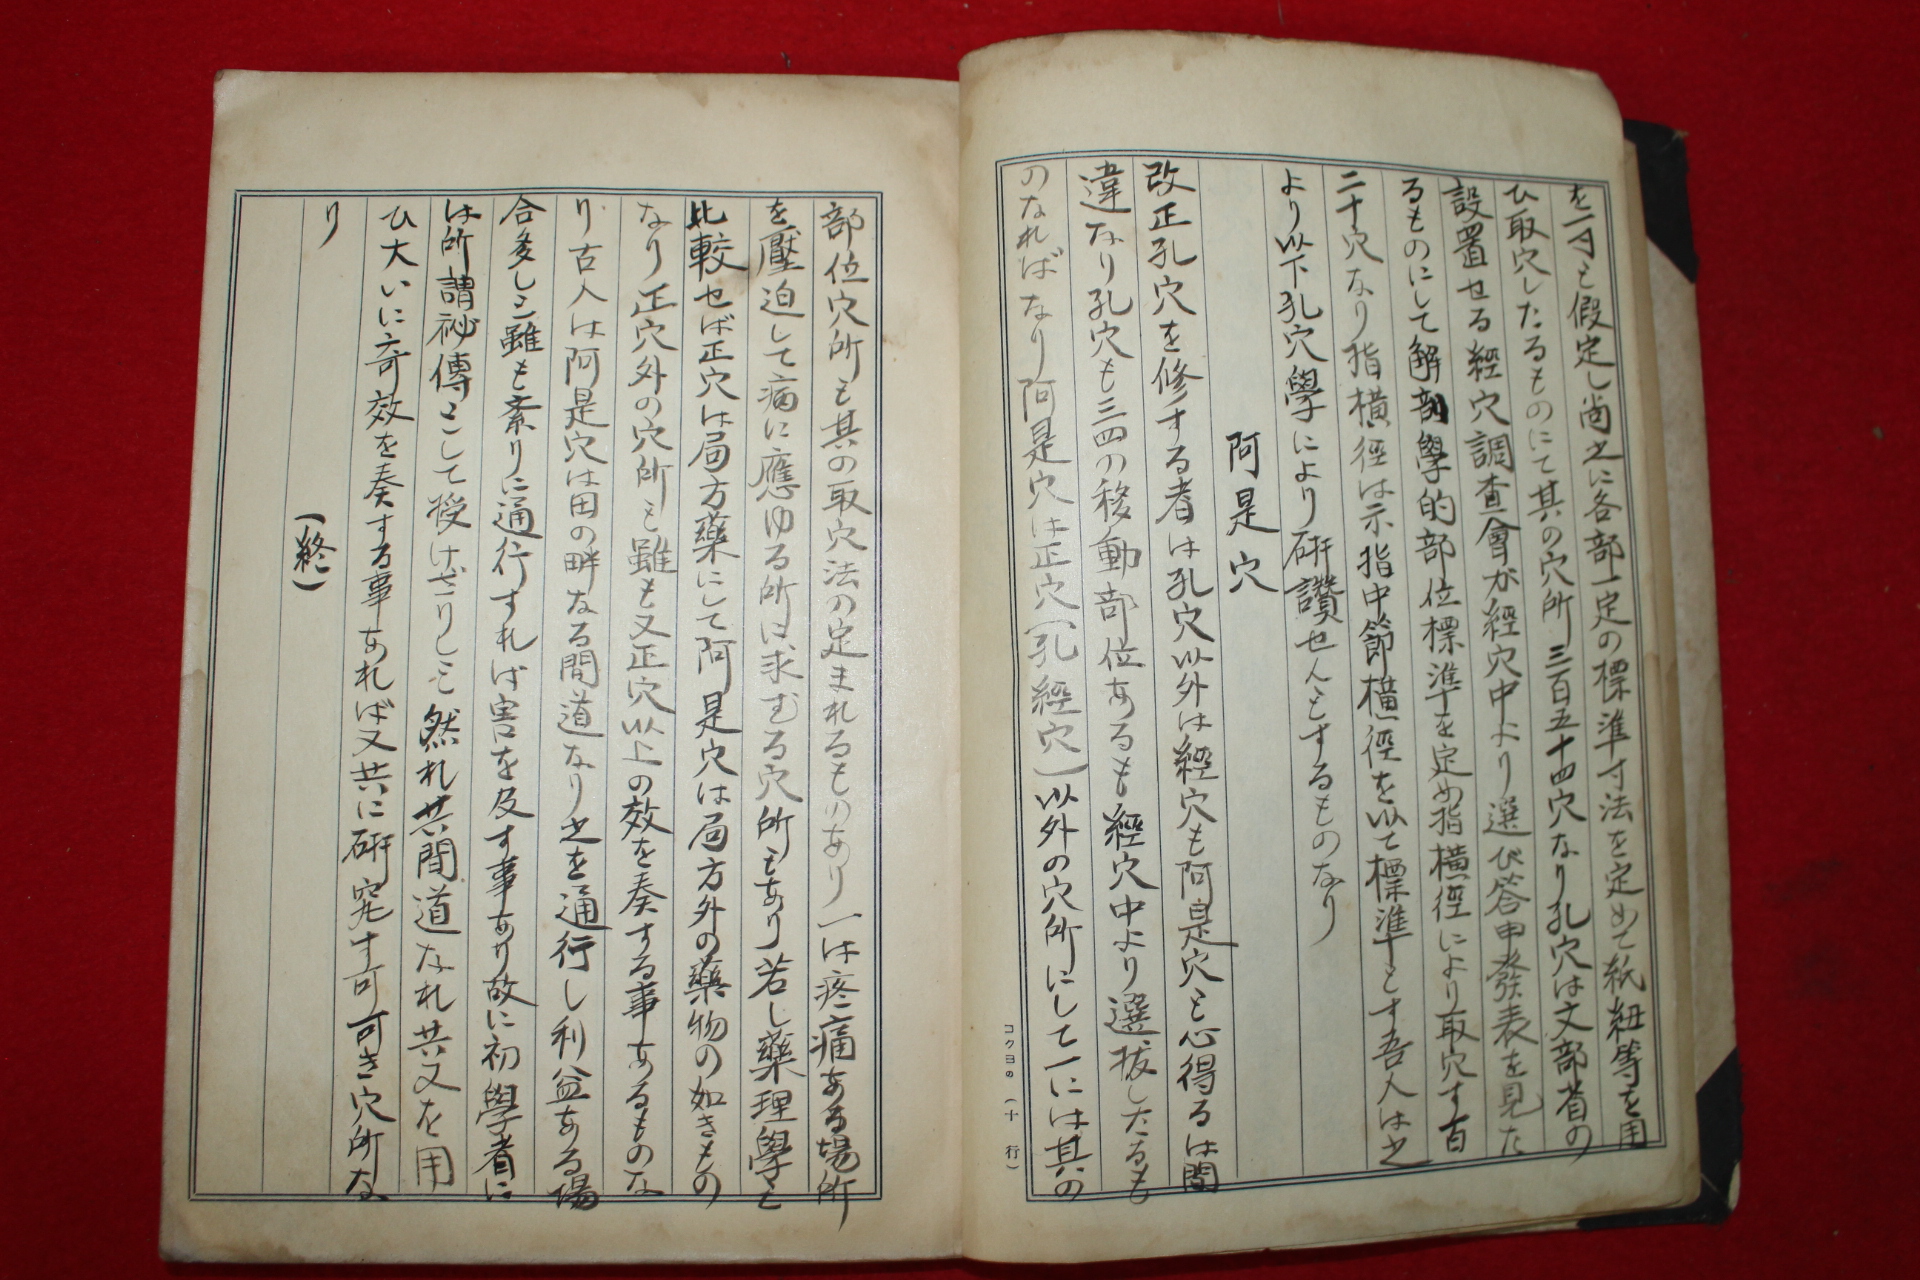 を一寸と假定し尚之に各部一定の標準寸法を定めて紙紐等を用
ひ取穴したるものにて其の穴所三百五十四穴なり孔穴は文部省の
設置せる經穴調査會が經穴中より選び答申發表を見た
るものにして解剖學的部位標準を定め指横徑により取穴す百
二十穴なり指横徑は示指中節横徑を以て標準とす吾人は之
より以下孔穴學により研讃せんとするものなり
阿是穴
改正孔穴を修する者は孔穴以外は經穴も阿是穴と心得るは間
違なり孔穴も三四の移動部位あるも經穴中より選拔したるも
のなればなり阿是穴は正穴(孔經穴)以外の穴所にして一には其の
コクヨの(十行)
部位穴所も其の取穴法の定まれるものあり一は疼痛ある場所
を壓迫して病に應ゆる所に求むる穴所もあり若し藥理學と
比較せば正穴は局方藥にして阿是穴は局方外の藥物の如きもの
なり正穴外の穴所と雖も又正穴以上の效を奏する事あるものな
り古人は阿是穴は田の畔なる間道なり之を通行し利益ある場
合多しと雖も紊りに通行すれば害を及す事あり故に初學者に
は所謂祕傳として授けざりしと然れ共間道なれ共又を用
ひ大いに奇效を奏する事あれば又共に研究す可可き穴所な
り
(終)